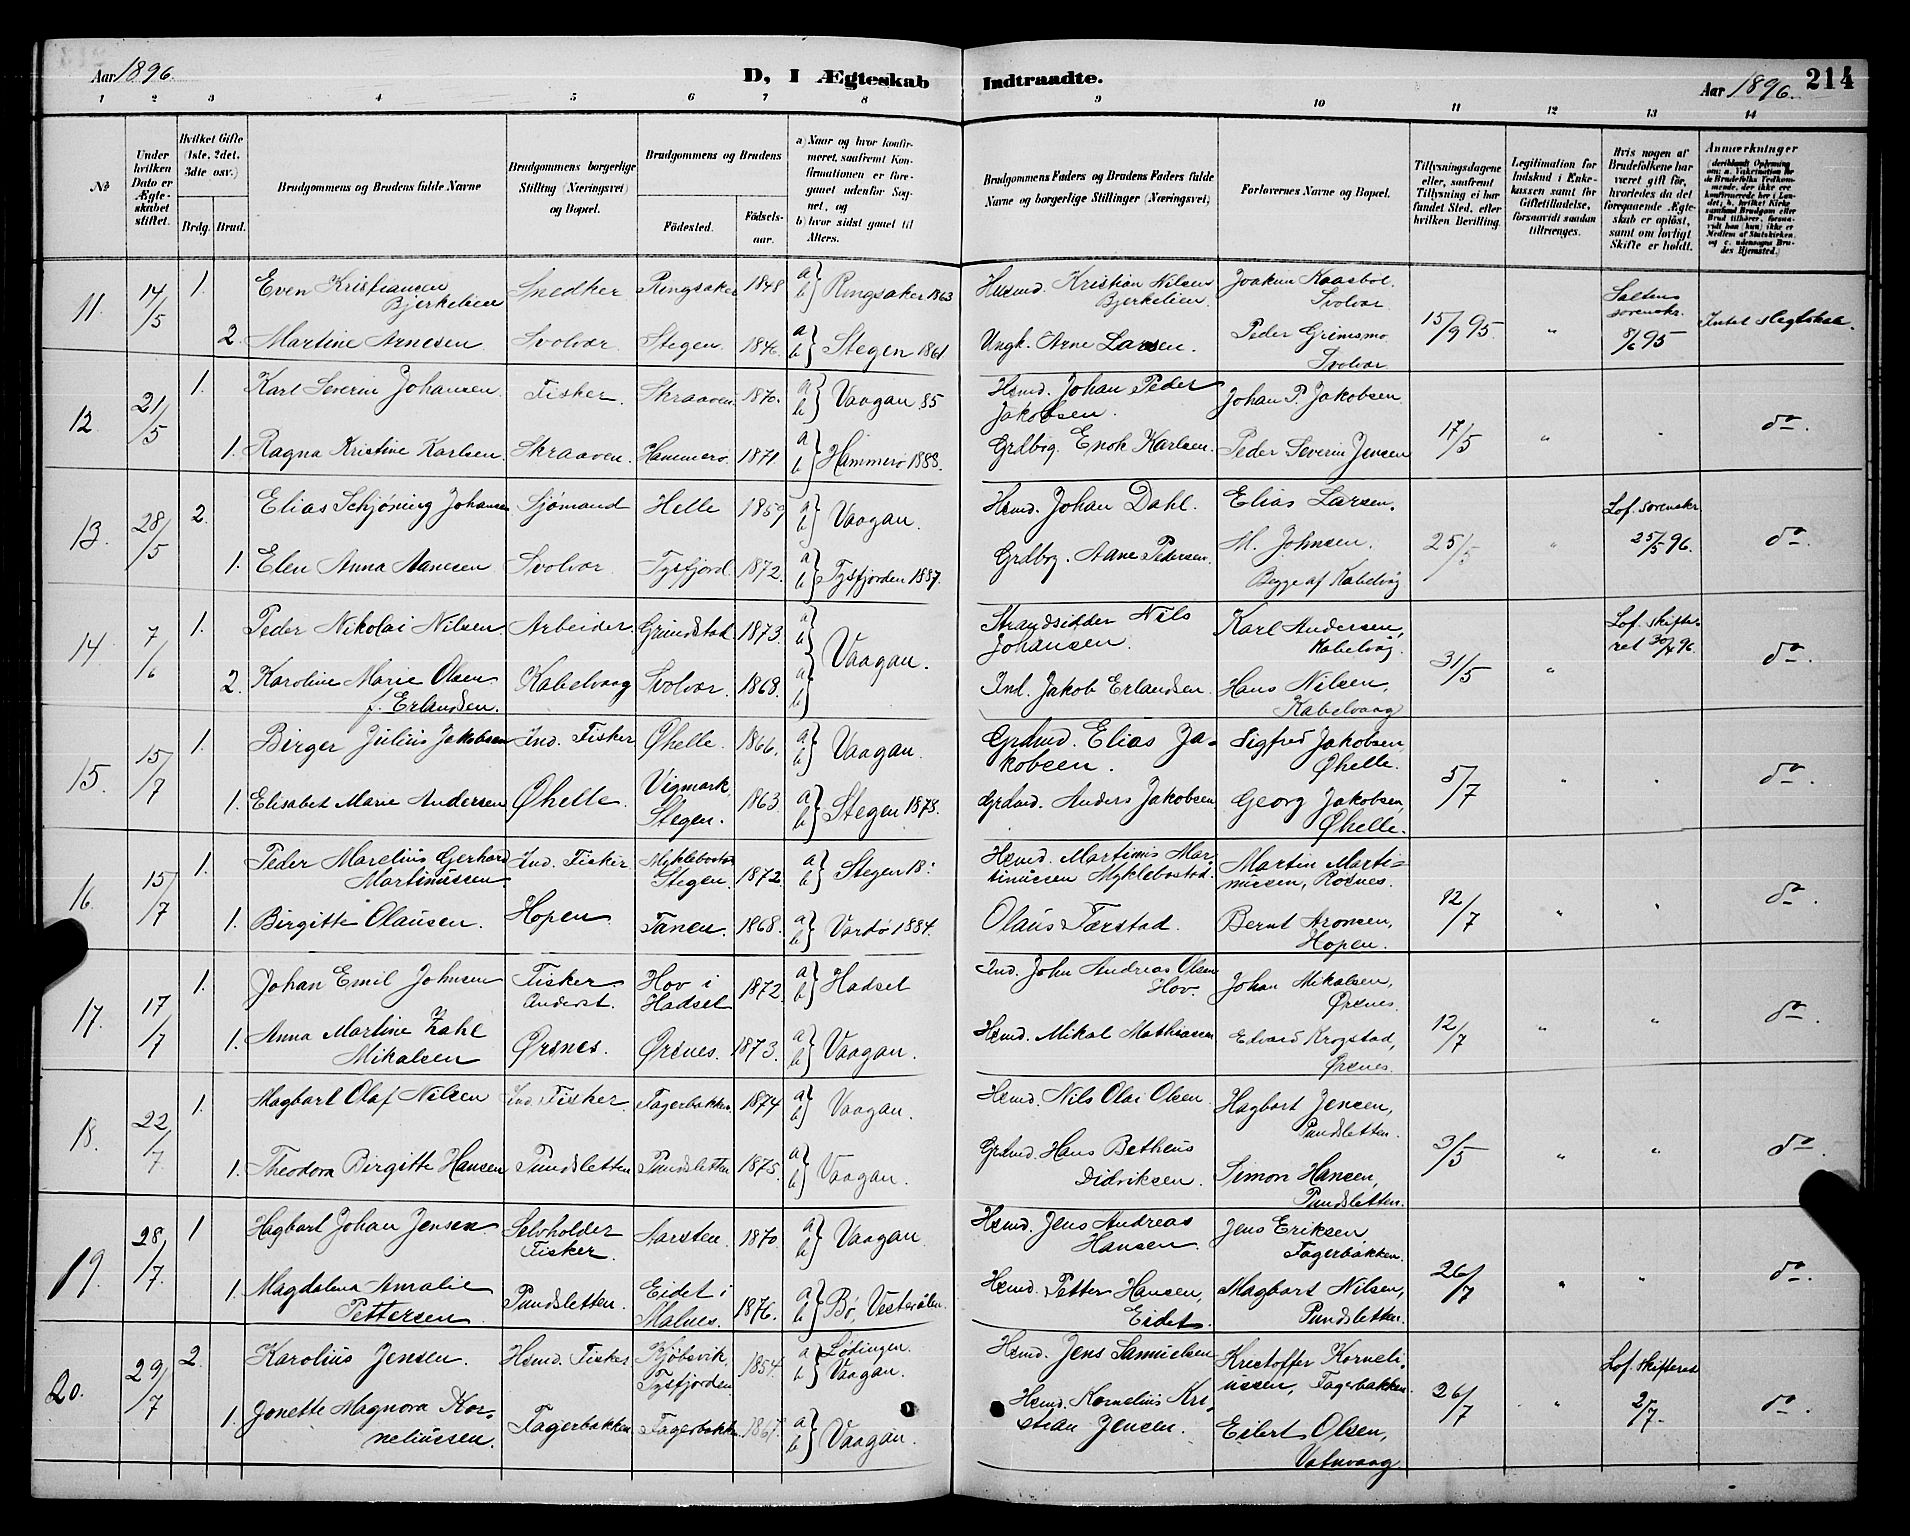 Aar 1896.
D, I Ægteskab
Indtraadte.
Aar 1896.
214
1 2 3 4 5 6 7 8 9 10 11 12 13 14
№
Under hvilken Dato er Ægteskabet stiftet.
Hvilket Gifte (1ste, 2det, 3dte osv.)
Brdg. Brud.
Brudgommens og Brudens fulde Navne
Brudgommens borgerlige Stilling (Næringsvei) og Bopæl.
Brudgommens og Brudens
Fødested.
Fødselsaar.
a) Naar og hvor konfirmeret, saafremt Konfirmationen er foregaaet udenfor Sognet, og
b) hvor sidst gaaet til Alters.
Brudgommens Faders og Brudens Faders fulde Navne og borgerlige Stillinger (Næringsvei)
Forlovernes Navne og Bopæl.
Tillysningsdagene eller, saafremt Tillysning ei har fundet Sted, efter hvilken Bevilling.
Legitimation for Indskud i Enkekassen samt for Giftetilladelse, forsaavidt saadan tiltrænges.
Hvis nogen af Brudefolkene har været gift før, hvorledes da det foregaaende Ægteskab er opløst, samt om lovligt Skifte er holdt.
Anmærkninger
11. 14/5 1. Even Kristiansen Bjerkelien Snedker Ringsaker 1848 a b } Ringsaker 1863 Husmd. Kristian Nilsen Bjerkelien Joakim Kaasbøl. Svolvær 15/9 95 " Saltens sorenskr. 8/6 95 Intet slegtskab.
2. Martine Arnesen Svolvær. Stegen. 1846. a b } Stegen 1861 Ungk. Arne Larsen. Peder Grimsmo Svolvær
12. 21/5 1. Karl Severin Johansen Fisker. Skraaven 1870. a b } Vaagan 85 Hsmd. Johan Peder Jakobsen. Johan P. Jakobsen 17/5 " " do.
1. Ragna Kristine Karlsen Skraaven. Hammerø. 1871. a b } Hammerø 1888. Grdbrg. Enok Karlsen. Peder Severin Jensen
13. 28/5 2. Elias Schjøning Johansen Sjømand Helle 1859 a b } Vaagan. Hsmd. Johan Dahl. Elias Larsen. 25/5 " Lof. sorenskr 25/5 96. do.
1. Elen Anna Aanesen Svolvær. Tysfjord 1872. a b } Tysfjorden 1887. Grdbrg. Aane Pedersen. M. Johnsen. Begge af Kabelvåg
14. 7/6 1. Peder Nikolai Nilsen Arbeider. Grundstad 1873. a b } Vaagan. Strandsidder Nils Johansen. Karl Andersen, Kabelvåg. 31/5 " Lof. skifteret 30/4 96. do.
2. Karoline Marie Olsen f. Erlandsen. Kabelvaag Svolvær. 1868. a b Ind. Jakob Erlandsen. Hans Nilsen, Kabelvaag
15. 15/7 1. Birger Julius Jakobsen Ind. Fisker Øhelle. 1866. a b } Vaagan. Grdmd. Elias Jakobsen. Sigfred Jakobsen Øhelle. 5/7 " " do.
1. Elisabet Marie Andersen Øhelle. Vigmark Stegen. 1863 a b } Stegen 1878. Grdmd. Anders Jakobsen Georg Jakobsen, Øhelle.
16. 15/7 1. Peder Marelius Gerhard Martinussen Ind. Fisker Myklebostad Stegen. 1872 a b } Stegen 18 Hsmd. Martinus Martinussen Myklebostad. Martin Martinussen, Risnes. 12/7 " " do.
1. Birgitte Olausen. Hopen Tanen. 1868. a b } Vardø 1884. Olaus Færstad. Bernt Aronsen, Hopen.
17. 17/7 1. Johan Emil Johnsen Fisker Anderst. Hov i Hadsel 1872. a b } Hadsel Ind. John Andreas Olsen Hov. Johan Mikalsen, Ørsnes. 12/7 " " do.
1. Anna Martine Zahl Mikalsen Ørsnes. Ørsnes. 1873. a b } Vaagan. Hsmd. Mikal Mathiassen Edvard Krogstad, Ørsnes.
18. 22/7 1. Magbart Olaf Nilsen Ind. Fisker. Fagerbakken 1874 a b } Vaagan. Hsmd. Nils Olai Olsen. Hagbart Jensen, Pundsletten. 3/5 " " do.
1. Theodora Birgitte Hansen Pundsletten Pundsletten 1875. a b } Vaagan. Grdmd. Hans Betheus Didriksen. Simon Hansen, Pundsletten.
19. 28/7 1 Hagbart Johan Jensen Selvholder Fisker. Aarsten. 1870 a b } Vaagan. Hsmd. Jens Andreas Hansen. Jens Eriksen Fagerbakken. 26/7 " " do.
1. Magdalena Amalie Pettersen Pundsletten. Eidet i Malnes. 1876. a b } Bø, Vesterålen. Hsmd. Petter Hansen, Eidet. Magbart Nilsen, Pundsletten.
20. 29/7 2. Karolius Jensen. Hsmd. Fisker Kjøbsvik, Tysfjorden 1854. a b } Lødingen. Vaagan. Hsmd. Jens Samuelsen Kristoffer Korneliussen, Fagerbakken. 26/7 " Lof. skifteret 2/7. do.
1. Jonette Magnora Korneliussen. Fagerbakken. Fagerbakk. 1867. a b } Vaagan. Hsmd. Kornelius Kristian Jensen. Eilert Olsen, Vatnvaag